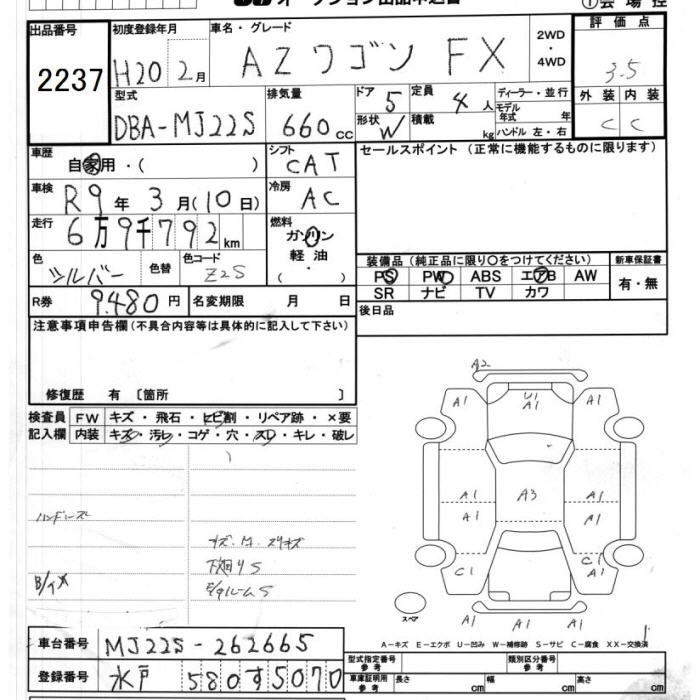 オークション出品申込書
①会場控
出品番号 2237
初度登録年月 H20 2月
車名・グレード AZワゴン FX
2WD・4WD
評価点 3.5
型式 DBA-MJ22S
排気量 660cc
ドア 5
定員 4人
形状 W
積載 kg
ディーラー・並行
モデル年式 年
ハンドル 左・右
外装 内装
C C
車歴 自家用・( )
シフト CAT
セールスポイント (正常に機能するものに限ります)
車検 R9年3月(10日)
冷房 AC
走行 6万9千792km
燃料 ガソリン 軽油 (・)
色 シルバー 色替
色コード Z2S
装備品 (純正品に限り〇をつけてください)
PS PW ABS エアB AW
SR ナビ TV カワ
新車保証書 有・無
R券 9,480円
名変期限 月 日
後日品
注意事項申告欄 (不具合内容等は具体的に記入して下さい)
修復歴 有 〔箇所 〕
検査員記入欄
FW キズ・飛石・ヒビ割・リペア跡・×要
内装 キズ・汚レ・コゲ・穴・スレ・キレ・破レ
A2
A1 U1 A1 A1
A1 A3 A1
A1 A1
C1 C1 A1
A1 A1
スペア
ハンドルス
キズ・M・スリキズ
下廻りS
B/イメ
A-キズ E-エクボ U-凹み W-補修跡 S-サビ C-腐食 XX-交換済
車台番号 MJ22S-262665
型式指定番号 参考
類別区分番号 参考
登録番号 水戸 580す5070
車庫証明用 参考 長さ cm 幅 cm 高さ cm